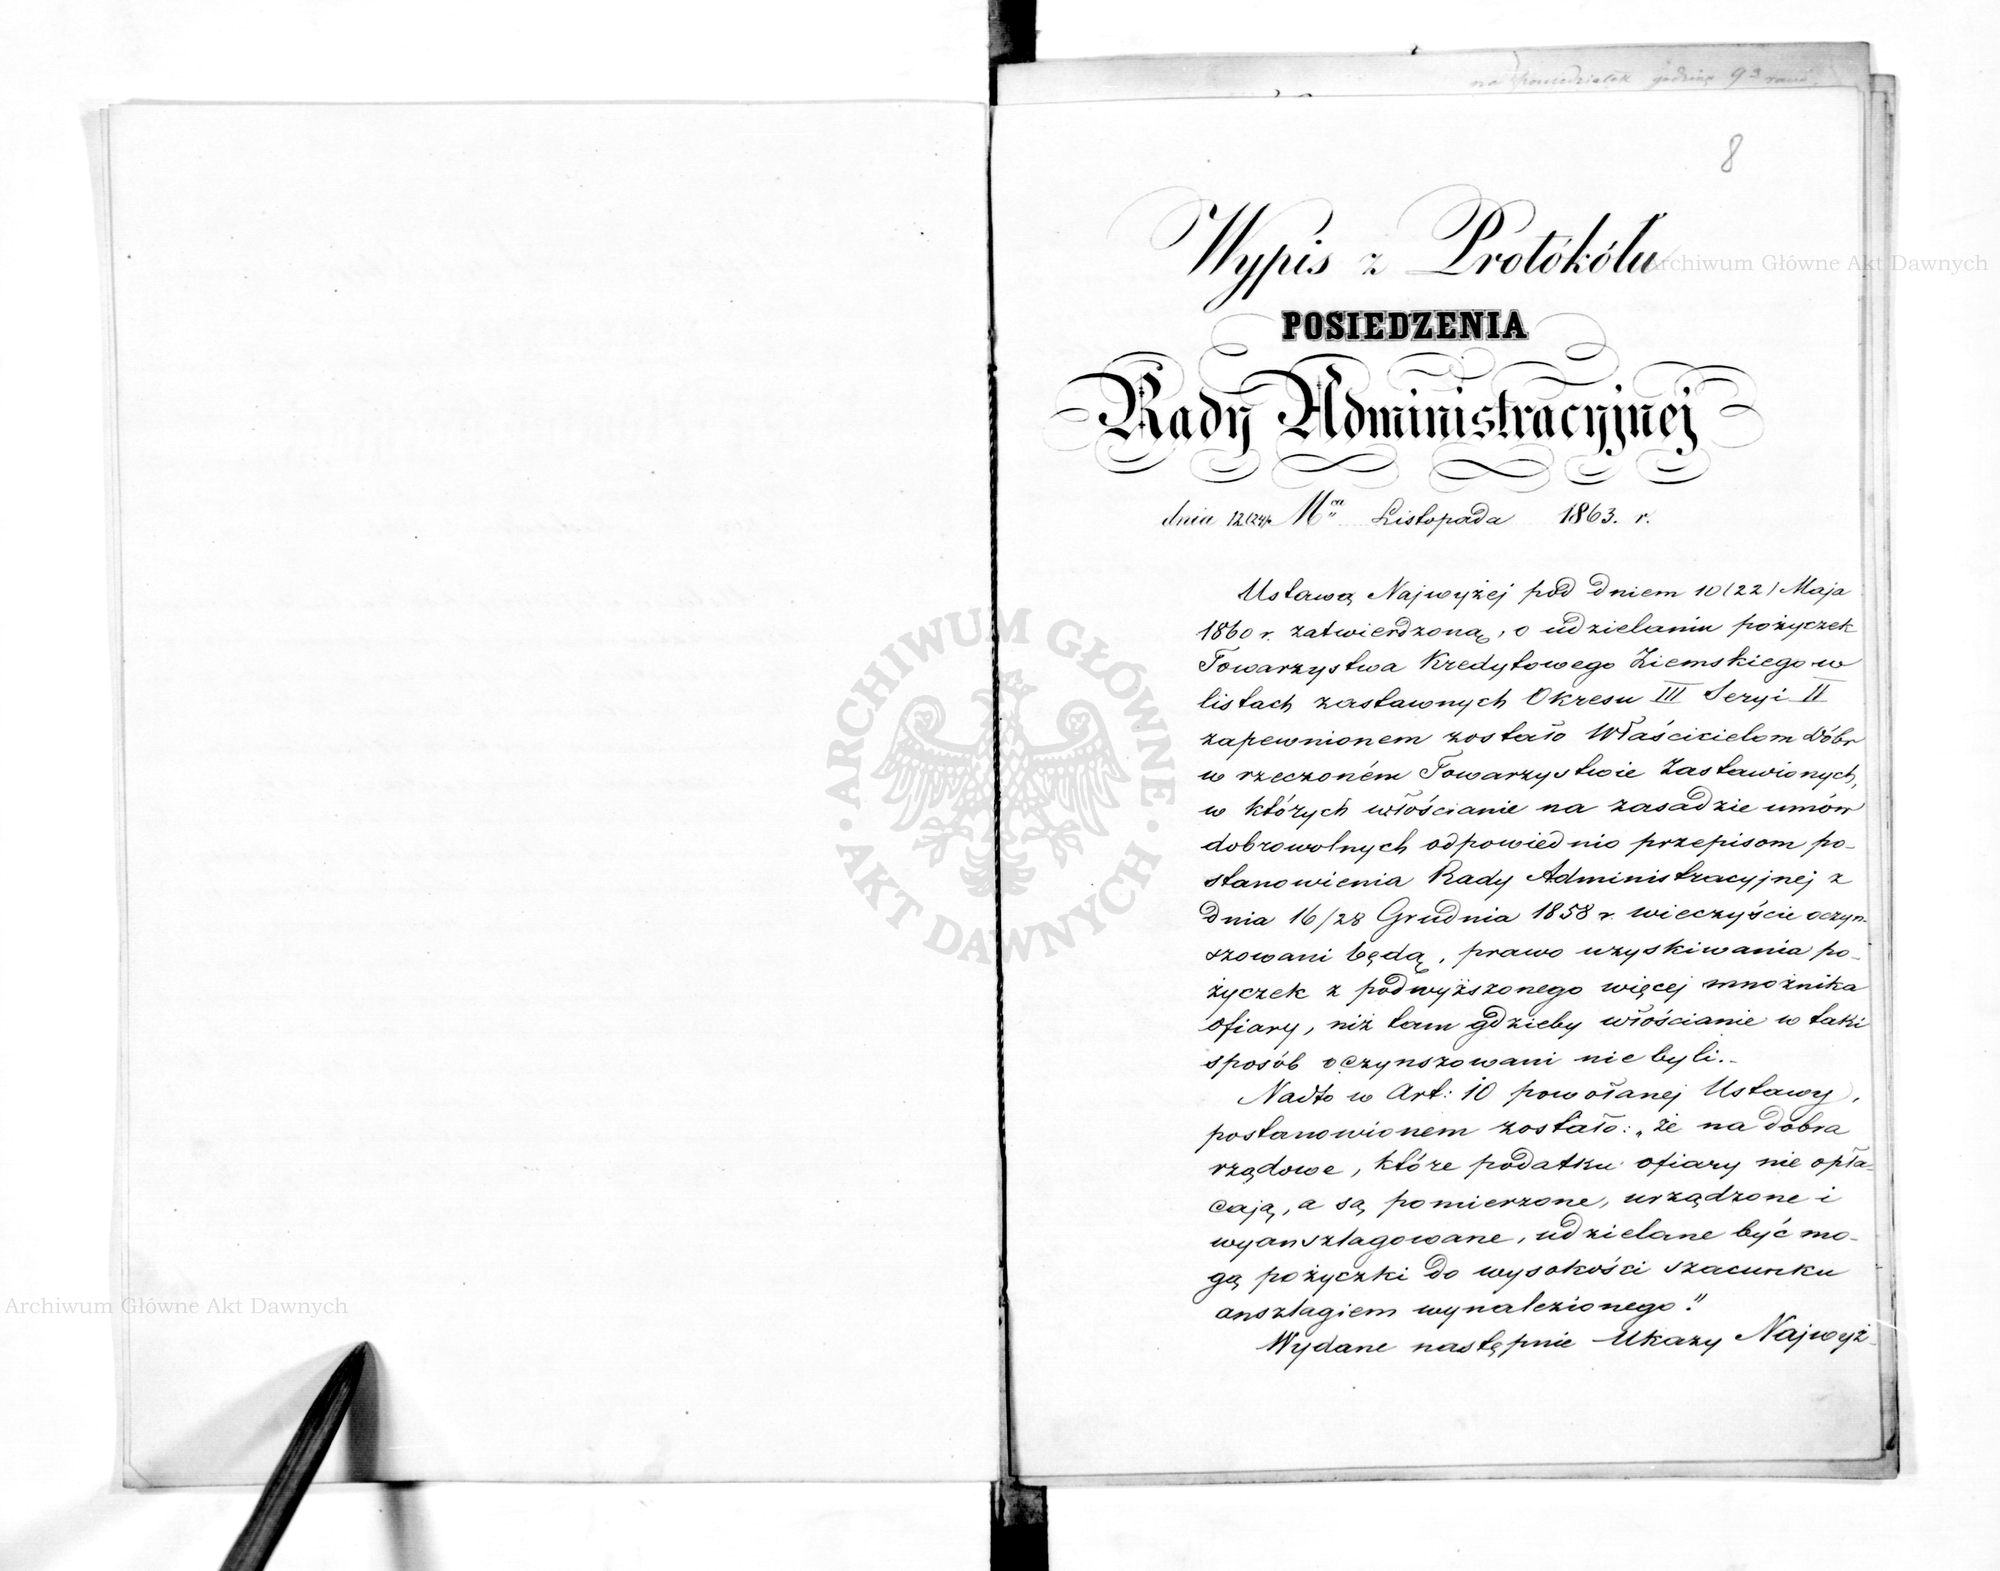 na poniedziałek godzinę 9ą rano.
8
Wypis z Protokółu
POSIEDZENIA
Rady Administracyjnej
dnia 12/24 Mca Listopada 1863. r.
Ustawą Najwyżej pod dniem 10/22/ Maja
1860 r. zatwierdzoną, o udzielaniu pożyczek
Towarzystwa Kredytowego Ziemskiego w
listach zastawnych Okresu III Seryi II
zapewnionem zostało Właścicielom Dóbr
w rzeczoném Towarzystwie Zastawionych,
w których włościanie na zasadzie umów
dobrowolnych odpowiednio przepisom po-
stanowienia Rady Administracyjnej z
dnia 16/28 Grudnia 1858 r. wieczyście oczyn-
szowani będą, prawo uzyskiwania po-
życzek z podwyższonego więcej mnożnika
ofiary, niż tam gdzieby włościanie w taki
sposób oczynszowani nie byli.-
Nadto w Art: 10 powołanej Ustawy,
postanowionem zostało: „że na dobra
rządowe, które podatku ofiary nie opła-
cają, a są pomierzone, urządzone i
wyansztagowane, udzielane być mo-
gą pożyczki do wysokości szacunku
ansztagiem wynalezionego."
Wydane następnie Ukazy Najwyż-
ARCHIWUM GŁÓWNE
AKT DAWNYCH
Archiwum Główne Akt Dawnych
Archiwum Główne Akt Dawnych